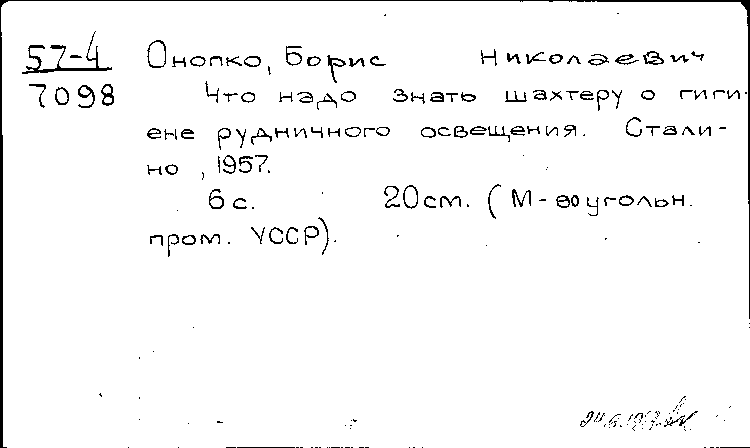 57-4
7098
Онопко, Борис Николаевич
Что надо знать шахтеру о гиги-
ене рудничного освещения. Стали-
но, 1957.
6 с. 20 см. (М-во угольн.
пром. УССР).